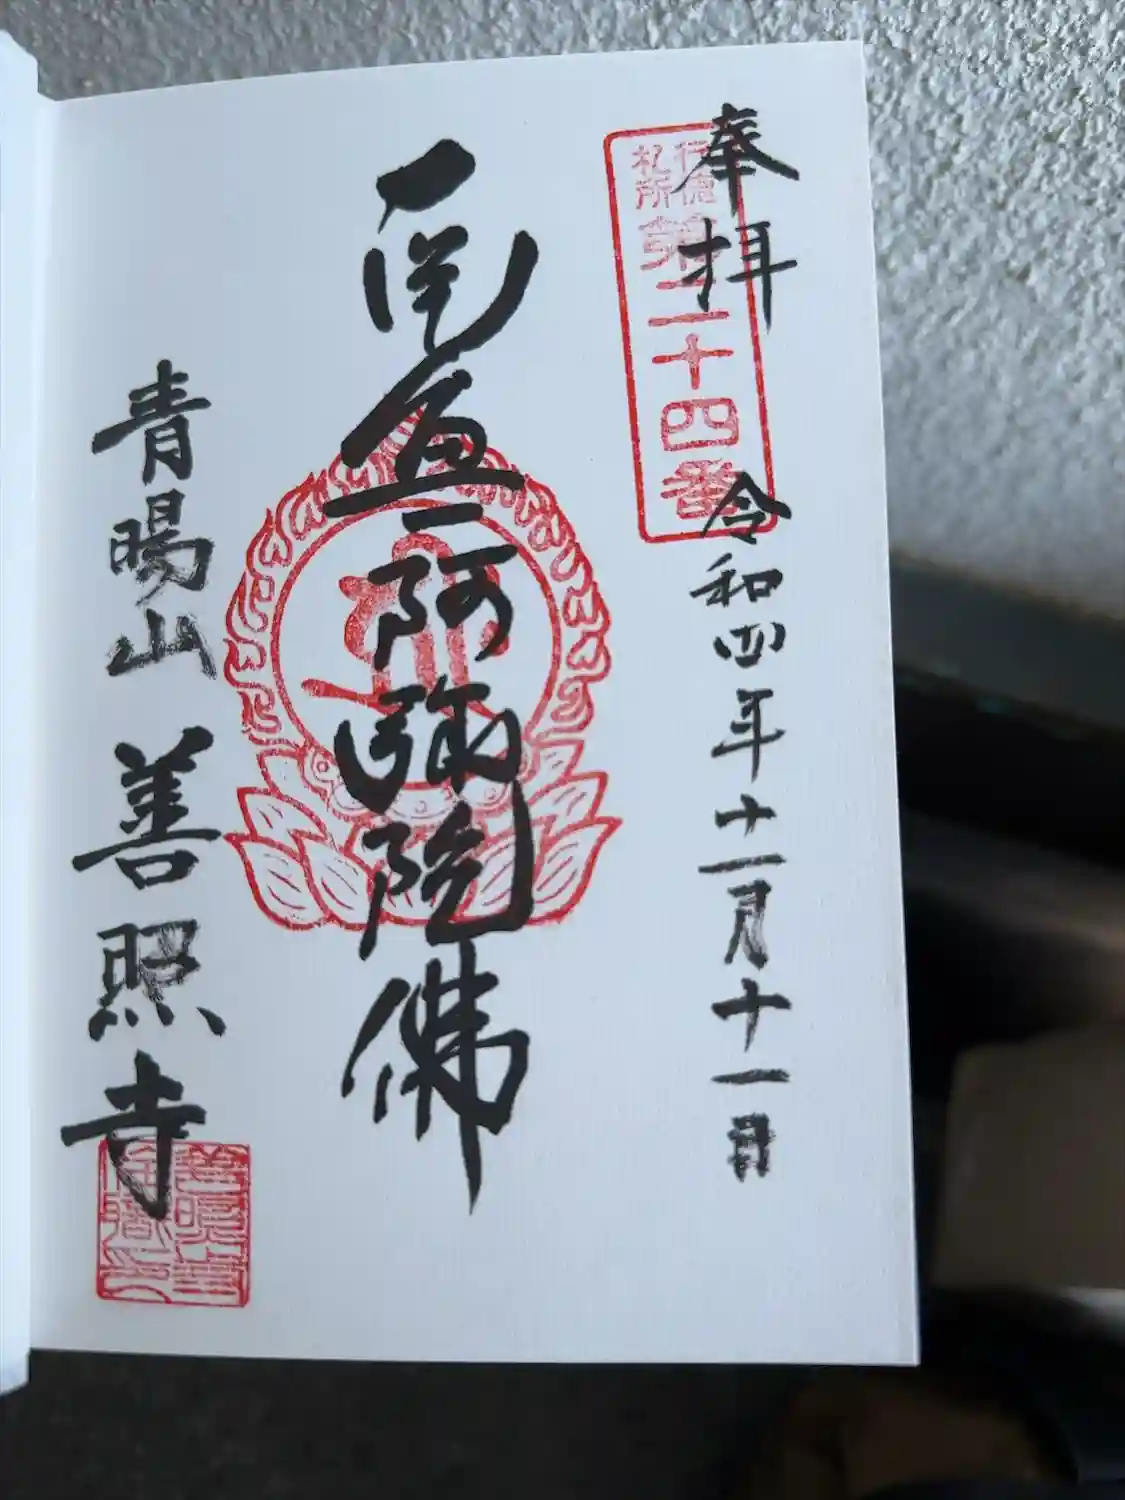 奉拝 令和四年十一月十一日
行徳
札所
第二十四番
南無阿彌陀佛
青暘山 善照寺